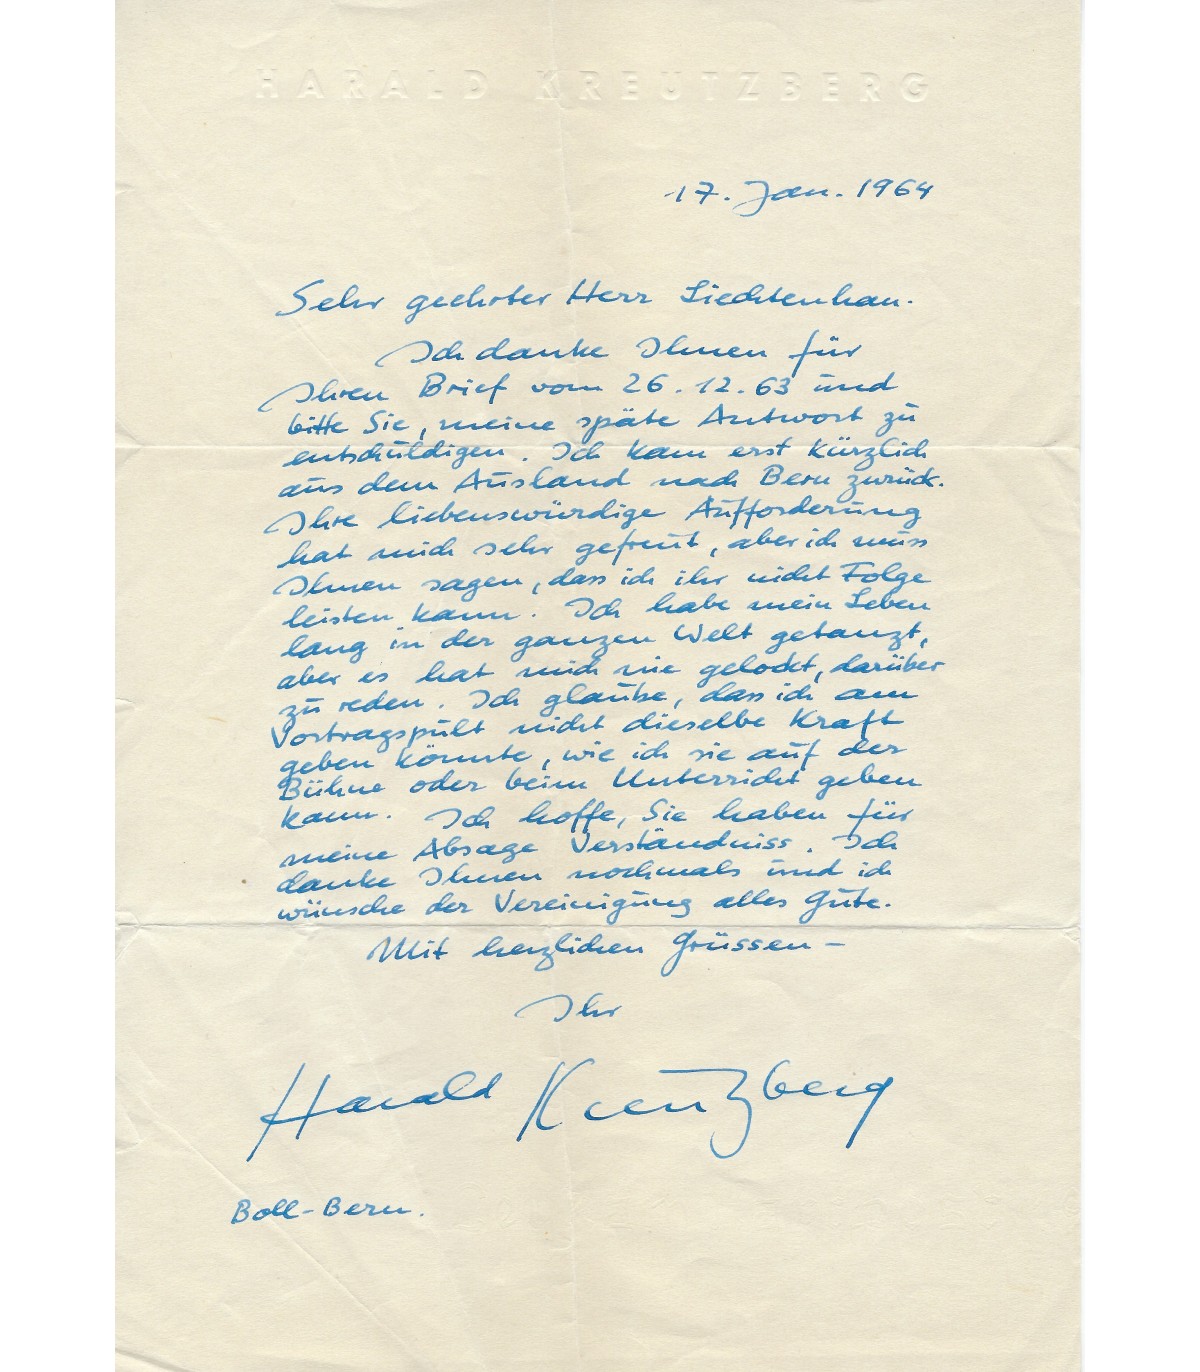 HARALD KREUTZBERG
17. Jan. 1964
Sehr geehrter Herr Liechtenhan.
Ich danke Ihnen für
Ihren Brief vom 26.12.63 und
bitte Sie, meine späte Antwort zu
entschuldigen. Ich kam erst kürzlich
aus dem Ausland nach Bern zurück.
Ihre liebenswürdige Aufforderung
hat mich sehr gefreut, aber ich muss
Ihnen sagen, dass ich ihr nicht Folge
leisten kann. Ich habe mein Leben
lang in der ganzen Welt getanzt,
aber es hat mich nie gelockt, darüber
zu reden. Ich glaube, dass ich am
Vortragspult nicht dieselbe Kraft
geben könnte, wie ich sie auf der
Bühne oder beim Unterricht geben
kann. Ich hoffe, Sie haben für
meine Absage Verständniss. Ich
danke Ihnen nochmals und ich
wünsche der Vereinigung alles Gute.
Mit herzlichen Grüssen –
Ihr
Harald Kreutzberg
Boll-Bern.